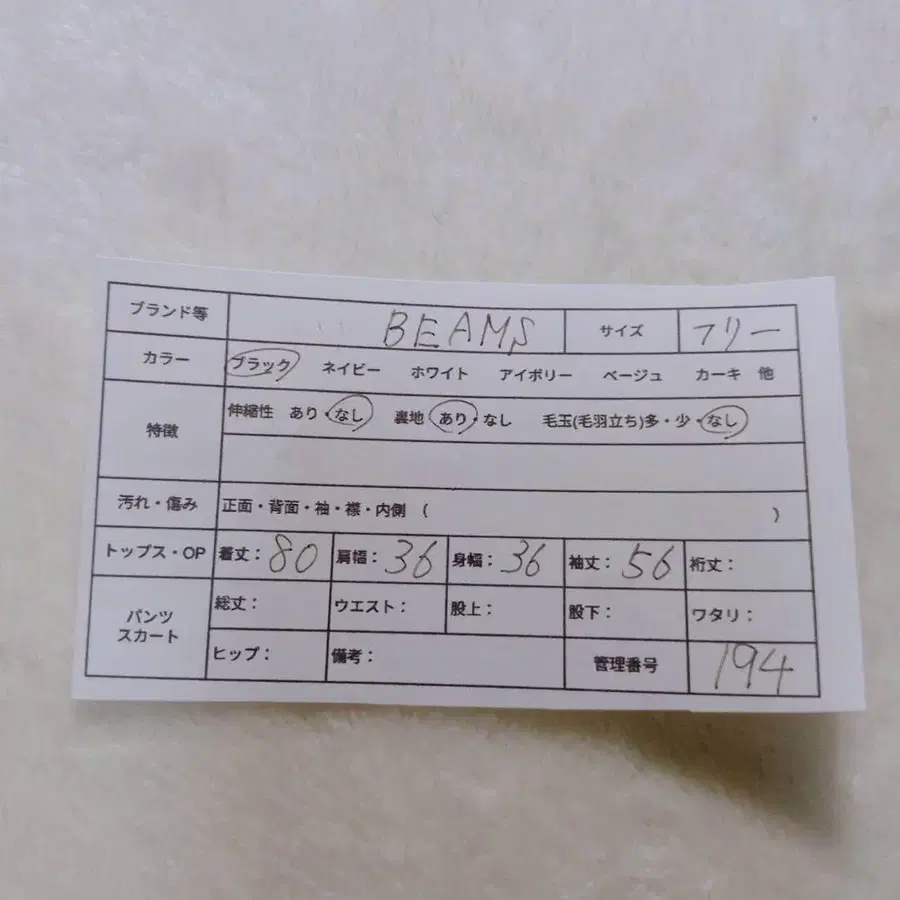 ブランド等 BEAMS サイズ フリー
カラー ブラック ネイビー ホワイト アイボリー ベージュ カーキ 他
特徴 伸縮性 あり・なし 裏地 あり・なし 毛玉(毛羽立ち)多・少・なし
汚れ・傷み 正面・背面・袖・襟・内側 ( )
トップス・OP 着丈：80 肩幅：36 身幅：36 袖丈：56 裄丈：
パンツ スカート 総丈： ウエスト： 股上： 股下： ワタリ：
ヒップ： 備考： 管理番号 194